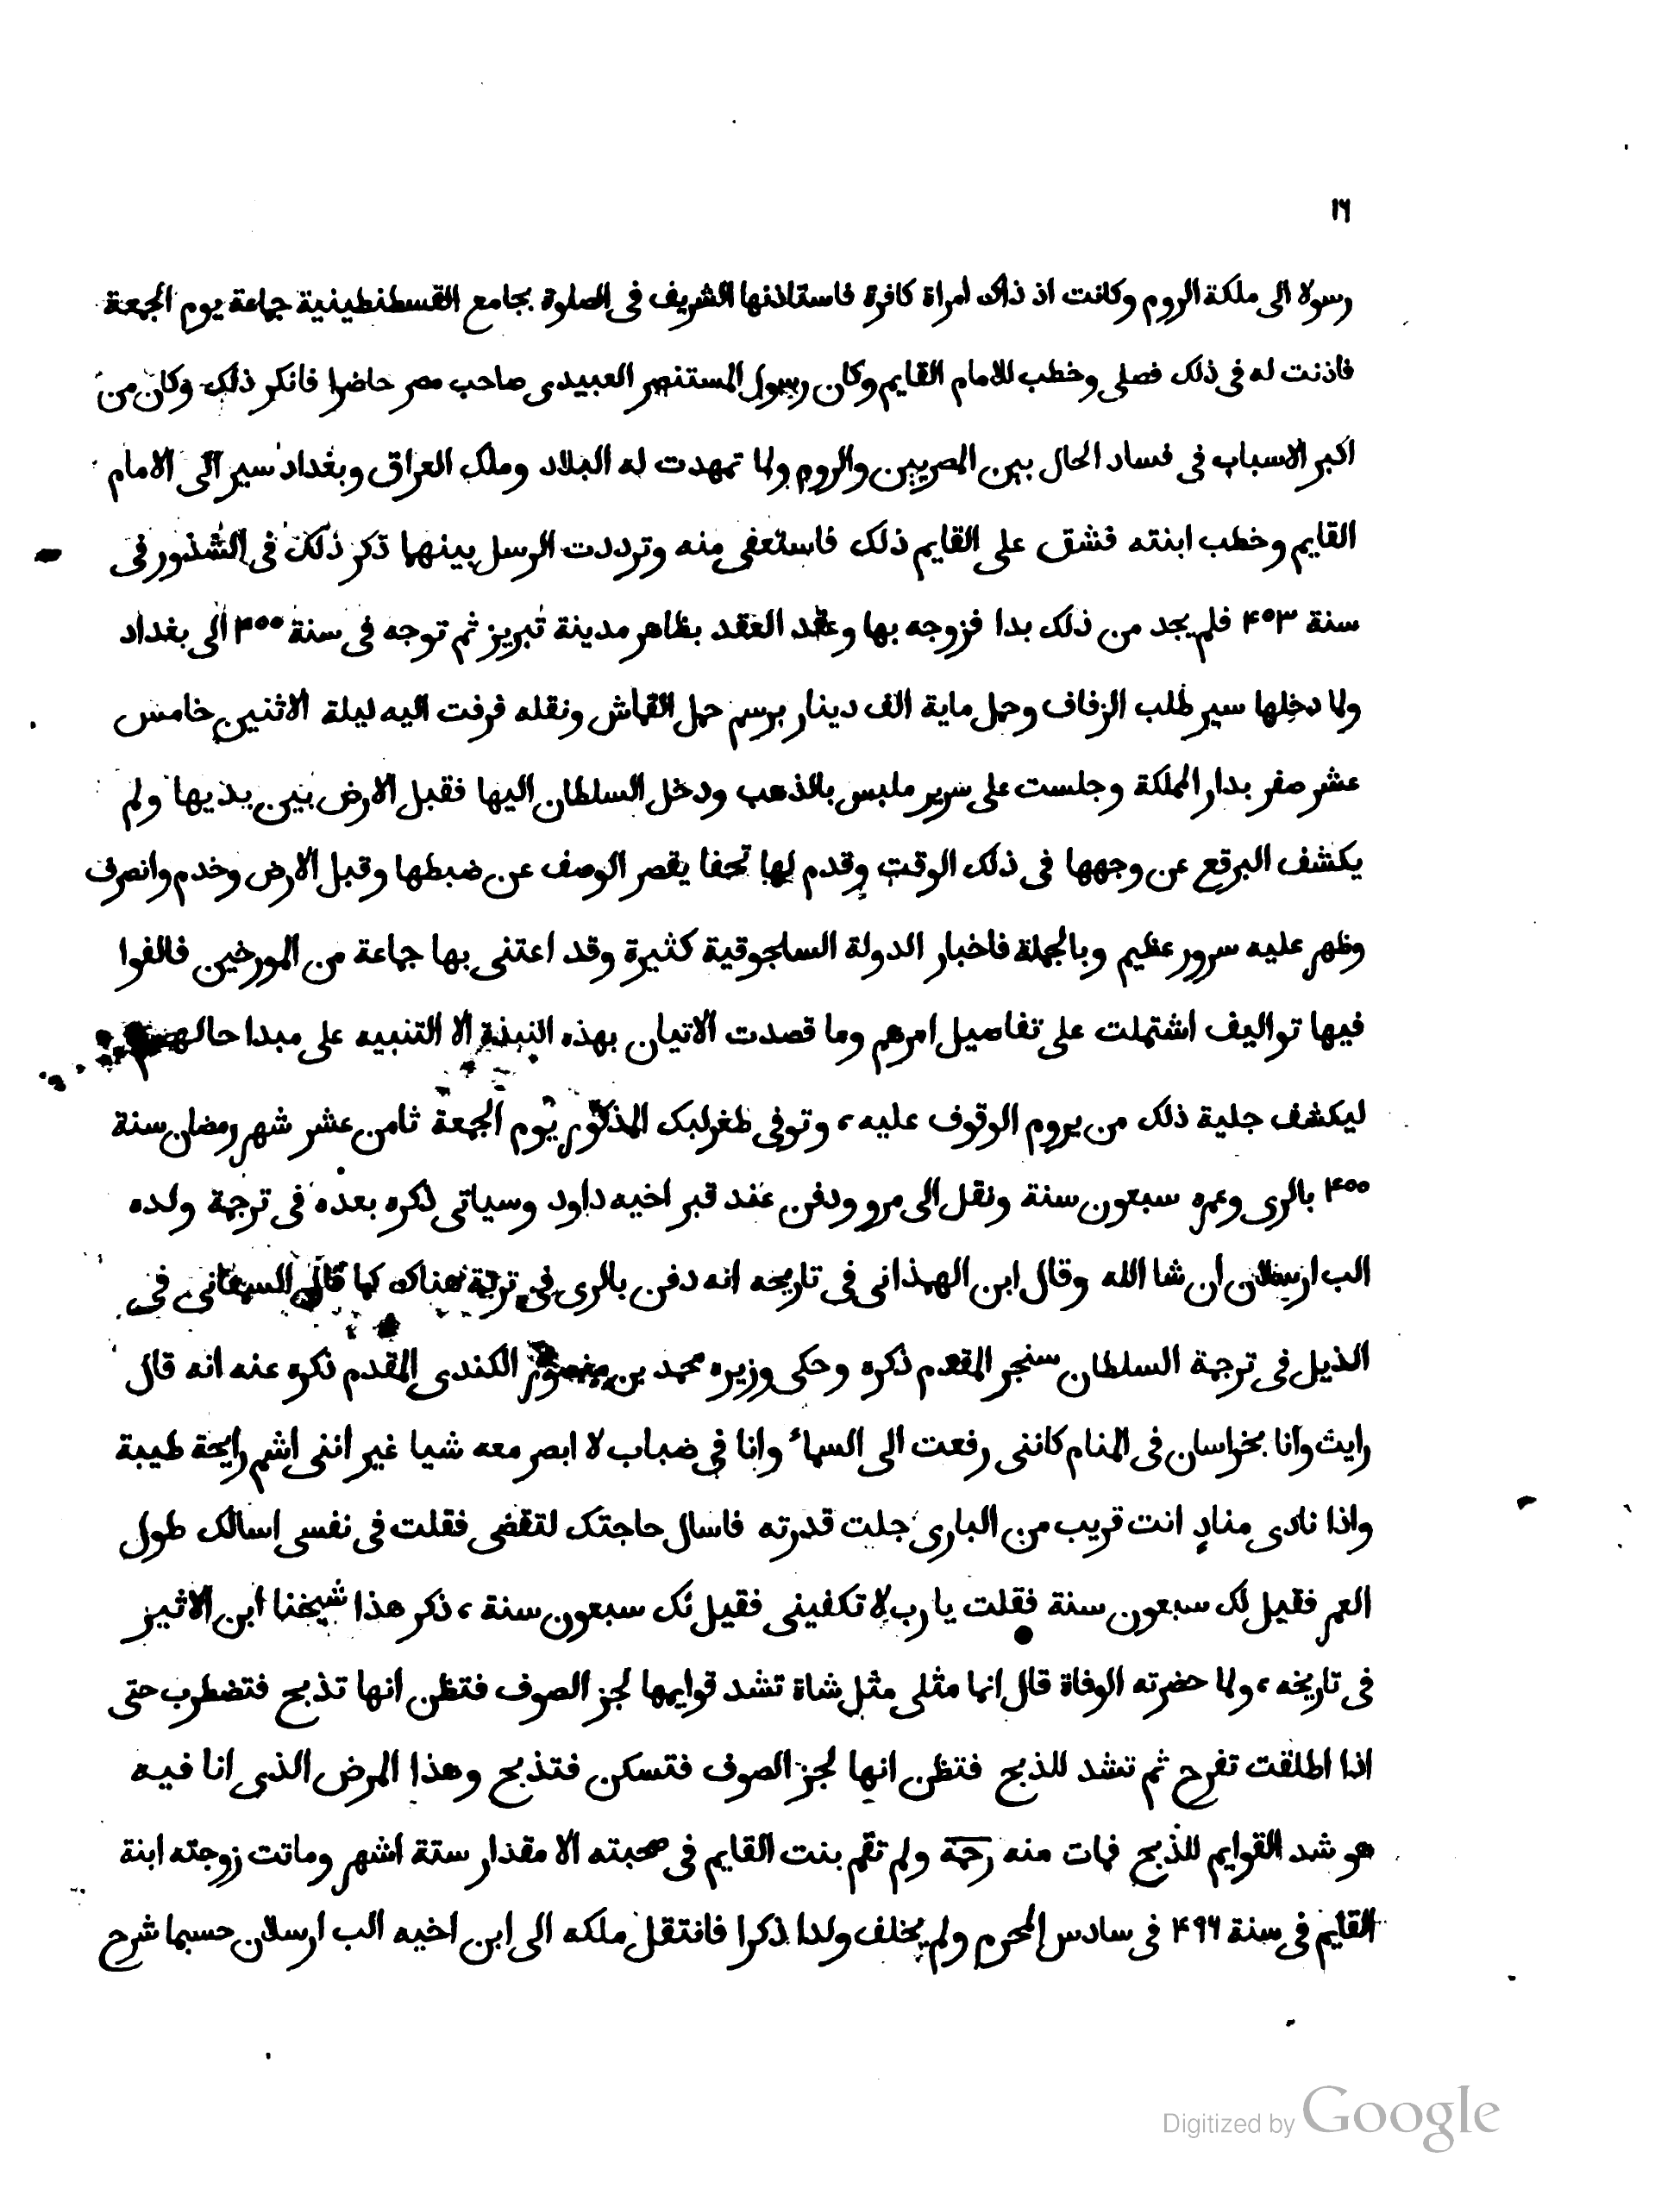 ١٦
رسولا الى ملكة الروم وكانت اذ ذاك امراة كافرة فاستاذنها الشريف فى الصلوة بجامع القسطنطينية جماعة يوم الجمعة
فاذنت له فى ذلك فصلى وخطب للامام القايم وكان رسول المستنصر العبيدى صاحب مصر حاضرا فانكر ذلك وكان من
اكبر الاسباب فى فساد الحال بين المصريين والروم ولما تمهدت له البلاد وملك العراق وبغداد سير الى الامام
القايم وخطب ابنته فشق على القايم ذلك فاستعفى منه وترددت الرسل بينهما ذكر ذلك فى الشذور فى
سنة ۴۵۳ فلم يجد من ذلك بدا فزوجه بها وعقد العقد بظاهر مدينة تبريز ثم توجه فى سنة ۴۵۵ الى بغداد
ولما دخلها سير طلب الزفاف وحمل ماية الف دينار برسم حمل القماش ونقله فزفت اليه ليلة الاثنين خامس
عشر صفر بدار المملكة وجلست على سرير ملبس بالذهب ودخل السلطان اليها فقبل الارض بين يديها ولم
يكشف البرقع عن وجهها فى ذلك الوقت وقدم لها تحفا يقصر الوصف عن ضبطها وقبل الارض وخدم وانصرف
وظهر عليه سرور عظيم وبالجملة فاخبار الدولة السلجوقية كثيرة وقد اعتنى بها جماعة من المورخين فالفوا
فيها تواليف اشتملت على تفاصيل امرهم وما قصدت الاتيان بهذه النبذة الا التنبيه على مبدا حالهم
ليكشف جلية ذلك من يروم الوقوف عليه، وتوفى طغرلبك المذكور يوم الجمعة ثامن عشر شهر رمضان سنة
۴۵۵ بالرى وعمره سبعون سنة ونقل الى مرو ودفن عند قبر اخيه داود وسياتى ذكره بعده فى ترجمة ولده
الب ارسلان ان شا الله وقال ابن الهمذانى فى تاريخه انه دفن بالرى فى تربة هناك كما قال السمعانى فى
الذيل فى ترجمة السلطان سنجر المقدم ذكره وحكى وزيره محمد بن منصور الكندى المقدم ذكره عنه انه قال
رايت وانا بخراسان فى المنام كاننى رفعت الى السماء وانا فى ضباب لا ابصر معه شيا غير اننى اشم رايحة طيبة
واذا نادى منادٍ انت قريب من البارى جلت قدرته فاسال حاجتك لتقضى فقلت فى نفسى اسالك طول
العمر فقيل لك سبعون سنة فقلت يا رب لا تكفينى فقيل لك سبعون سنة، ذكر هذا شيخنا ابن الاثير
فى تاريخه، ولما حضرته الوفاة قال انما مثلى مثل شاة تشد قوايمها لجز الصوف فتظن انها تذبح فتضطرب حتى
اذا اطلقت تفرح ثم تشد للذبح فتظن انها لجز الصوف فتسكن فتذبح وهذا المرض الذى انا فيه
هو شد القوايم للذبح فمات منه رحمة ولم تقم بنت القايم فى صحبته الا مقدار ستة اشهر وماتت زوجته ابنة
القايم فى سنة ۴۹۶ فى سادس المحرم ولم يخلف ولدا ذكرا فانتقل ملكه الى ابن اخيه الب ارسلان حسبما شرح
Digitized by Google